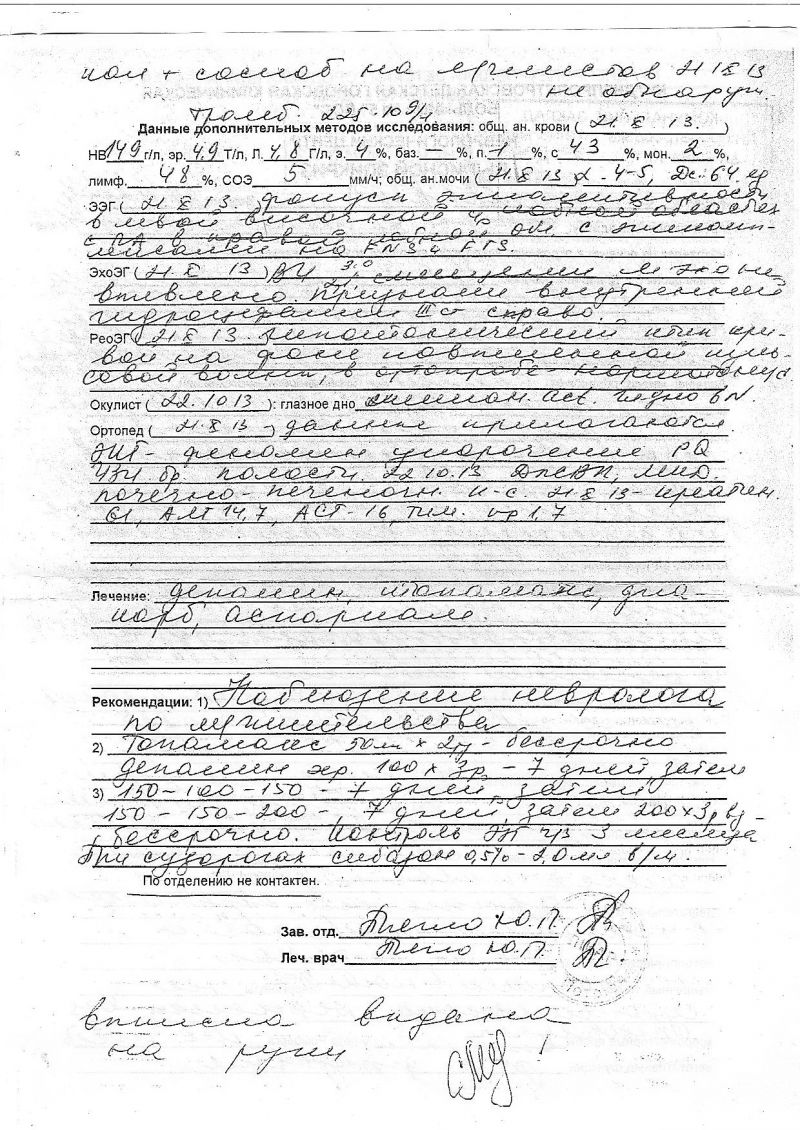 кал + соскоб на я/глистов 21 X 13
не обнаруж.
Тромб. 225 10 9/л
Данные дополнительных методов исследования: общ. ан. крови ( 21 X 13. )
НВ 149 г/л, эр. 4,9 Т/л, Л. 4,8 Г/л, э. 4 %, баз. — %, п. 1 %, с 43 %, мон. 2 %,
лимф. 48 %, СОЭ 5 мм/ч; общ. ан.мочи ( 21 X 13 L - 4-5,
ЭЭГ ( 21 X 13. фокусы эпилептивности
в левой височной
ЭхоЭГ ( 21 X 13 ) смещения М эхо не
выявлено. Признаки внутренней
гидроцефалии справа.
РеоЭГ ( 21 X 13. гипотонический тип кри-
вой на фоне повышенной пуль-
совой волны, в ортопробе - нормотонус.
Окулист ( 22.10 13 ): глазное дно гл. дно в N.
Ортопед ( 21 X 13 ) - данные прилагаются
ЭКГ - феномен укорочение PQ
УЗИ бр. полости. 22 10.13 ДЖВП,
почечно - печеночн. к-с. 21 X 13 - креатин.
61, АЛТ 14,7, АСТ - 16, тим. пр 1,7
Лечение: депакин, топамакс, диа-
карб, аспаркам.
Рекомендации: 1) Наблюдение невролога
по м/жительства
2) Топамакс 50мг х 2р - бессрочно
депакин хр. 100 х 3р - 7 дней, затем
3) 150 - 100 - 150 - 7 дней, затем
150 - 150 - 200 -, 7 дней, затем 200 х 3р
бессрочно. Контроль ч/з 3 месяца
При судорогах сибазон 0,5% - 2,0 мл в/м.
По отделению не контактен.
Зав. отд. Тягло Ю.П.
Леч. врач Тягло Ю.П.
выписка выдана
на руки